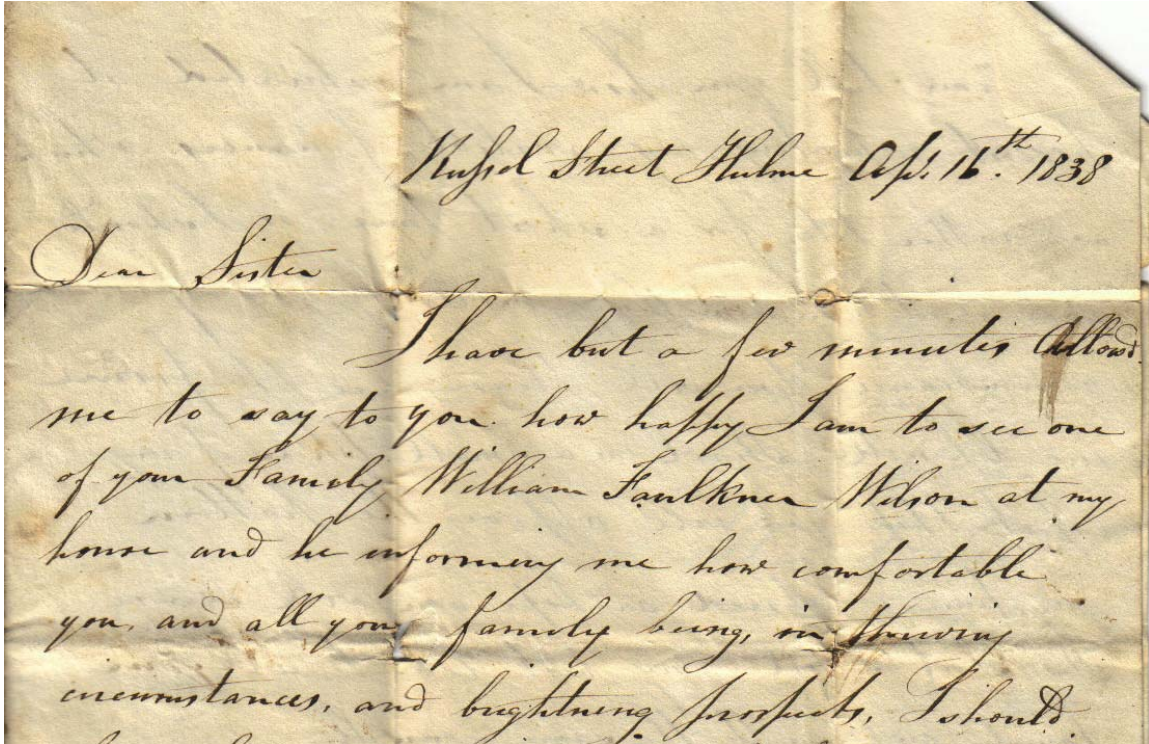 Russel Street Hulme Apl. 16th. 1838
Dear Sister
I have but a few minutes Allowd.
me to say to you how happy I am to see one
of your Family William Faulkner Wilson at my
house and he informing me how comfortable
you, and all your family being, in thriving
circumstances, and brightning prospects, I should